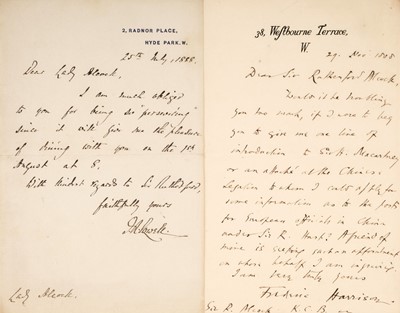 2, RADNOR PLACE,
HYDE PARK. W.
25th July, 1888.
Dear Lady Alcock,
I am much obliged
to you for being so "persevering"
since it will give me the pleasure
of dining with you on the 1st
August at 8.
With kindest regards to Sir Rutherford,
faithfully yours
Lady Alcock.
38, Westbourne Terrace,
W.
29. Nov 1888
Dear Sir Rutherford Alcock,
Would it be troubling
you too much, if I were to beg
you to give me one line of
introduction to Sir H. Macartney
or an attaché at the Chinese
Legation to whom I could apply for
some information as to the posts
for European officials in China
under Sir R. Hart? A friend of
mine is seeking such an appointment
on whose behalf I am inquiring.
I am very truly yours
Frederic Harrison
Sir R. Alcock K.C.B.